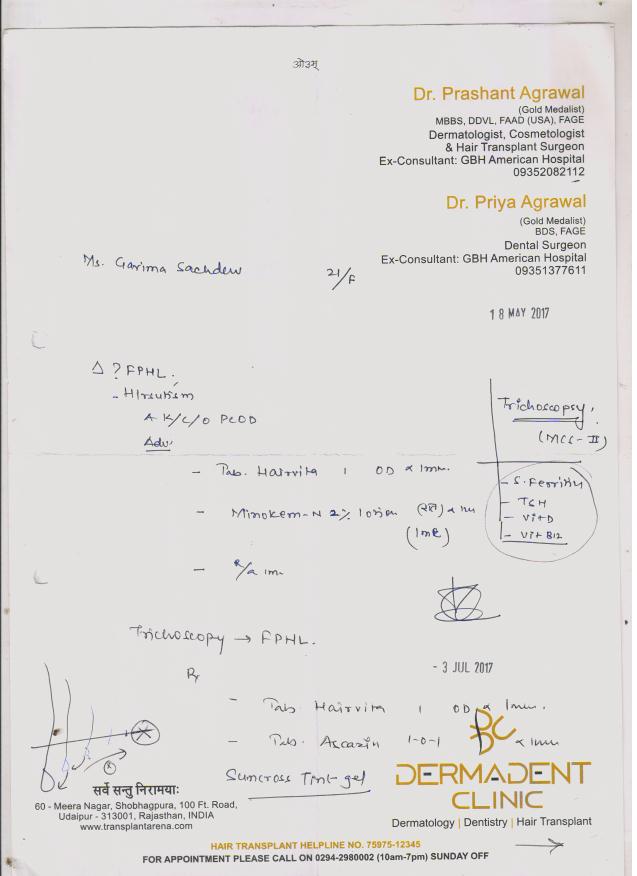 ओ३म्
Dr. Prashant Agrawal
(Gold Medalist)
MBBS, DDVL, FAAD (USA), FAGE
Dermatologist, Cosmetologist
& Hair Transplant Surgeon
Ex-Consultant: GBH American Hospital
09352082112
Dr. Priya Agrawal
(Gold Medalist)
BDS, FAGE
Dental Surgeon
Ex-Consultant: GBH American Hospital
09351377611
Ms. Garima Sachdew
21/F
18 MAY 2017
Δ ? FPHL.
- Hirsutism
A K/C/O PCOD
Adv:
Trichoscopy.
(MCS-II)
- S. Ferritin
- TSH
- Vit D
- Vit B12
- Tab. Hairvita 1 OD x 1m.
- Minokem-N 2% lotion (रात) x 1m
(1ml)
- R/a 1m.
Trichoscopy → FPHL.
- 3 JUL 2017
Rx
- Tab. Hairvita 1 OD x 1m.
- Tab. Ascazin 1-0-1 x 1m
Suncross Tint gel
DC
DERMADENT
CLINIC
Dermatology | Dentistry | Hair Transplant
सर्वे सन्तु निरामयाः
60 - Meera Nagar, Shobhagpura, 100 Ft. Road,
Udaipur - 313001, Rajasthan, INDIA
www.transplantarena.com
HAIR TRANSPLANT HELPLINE NO. 75975-12345
FOR APPOINTMENT PLEASE CALL ON 0294-2980002 (10am-7pm) SUNDAY OFF